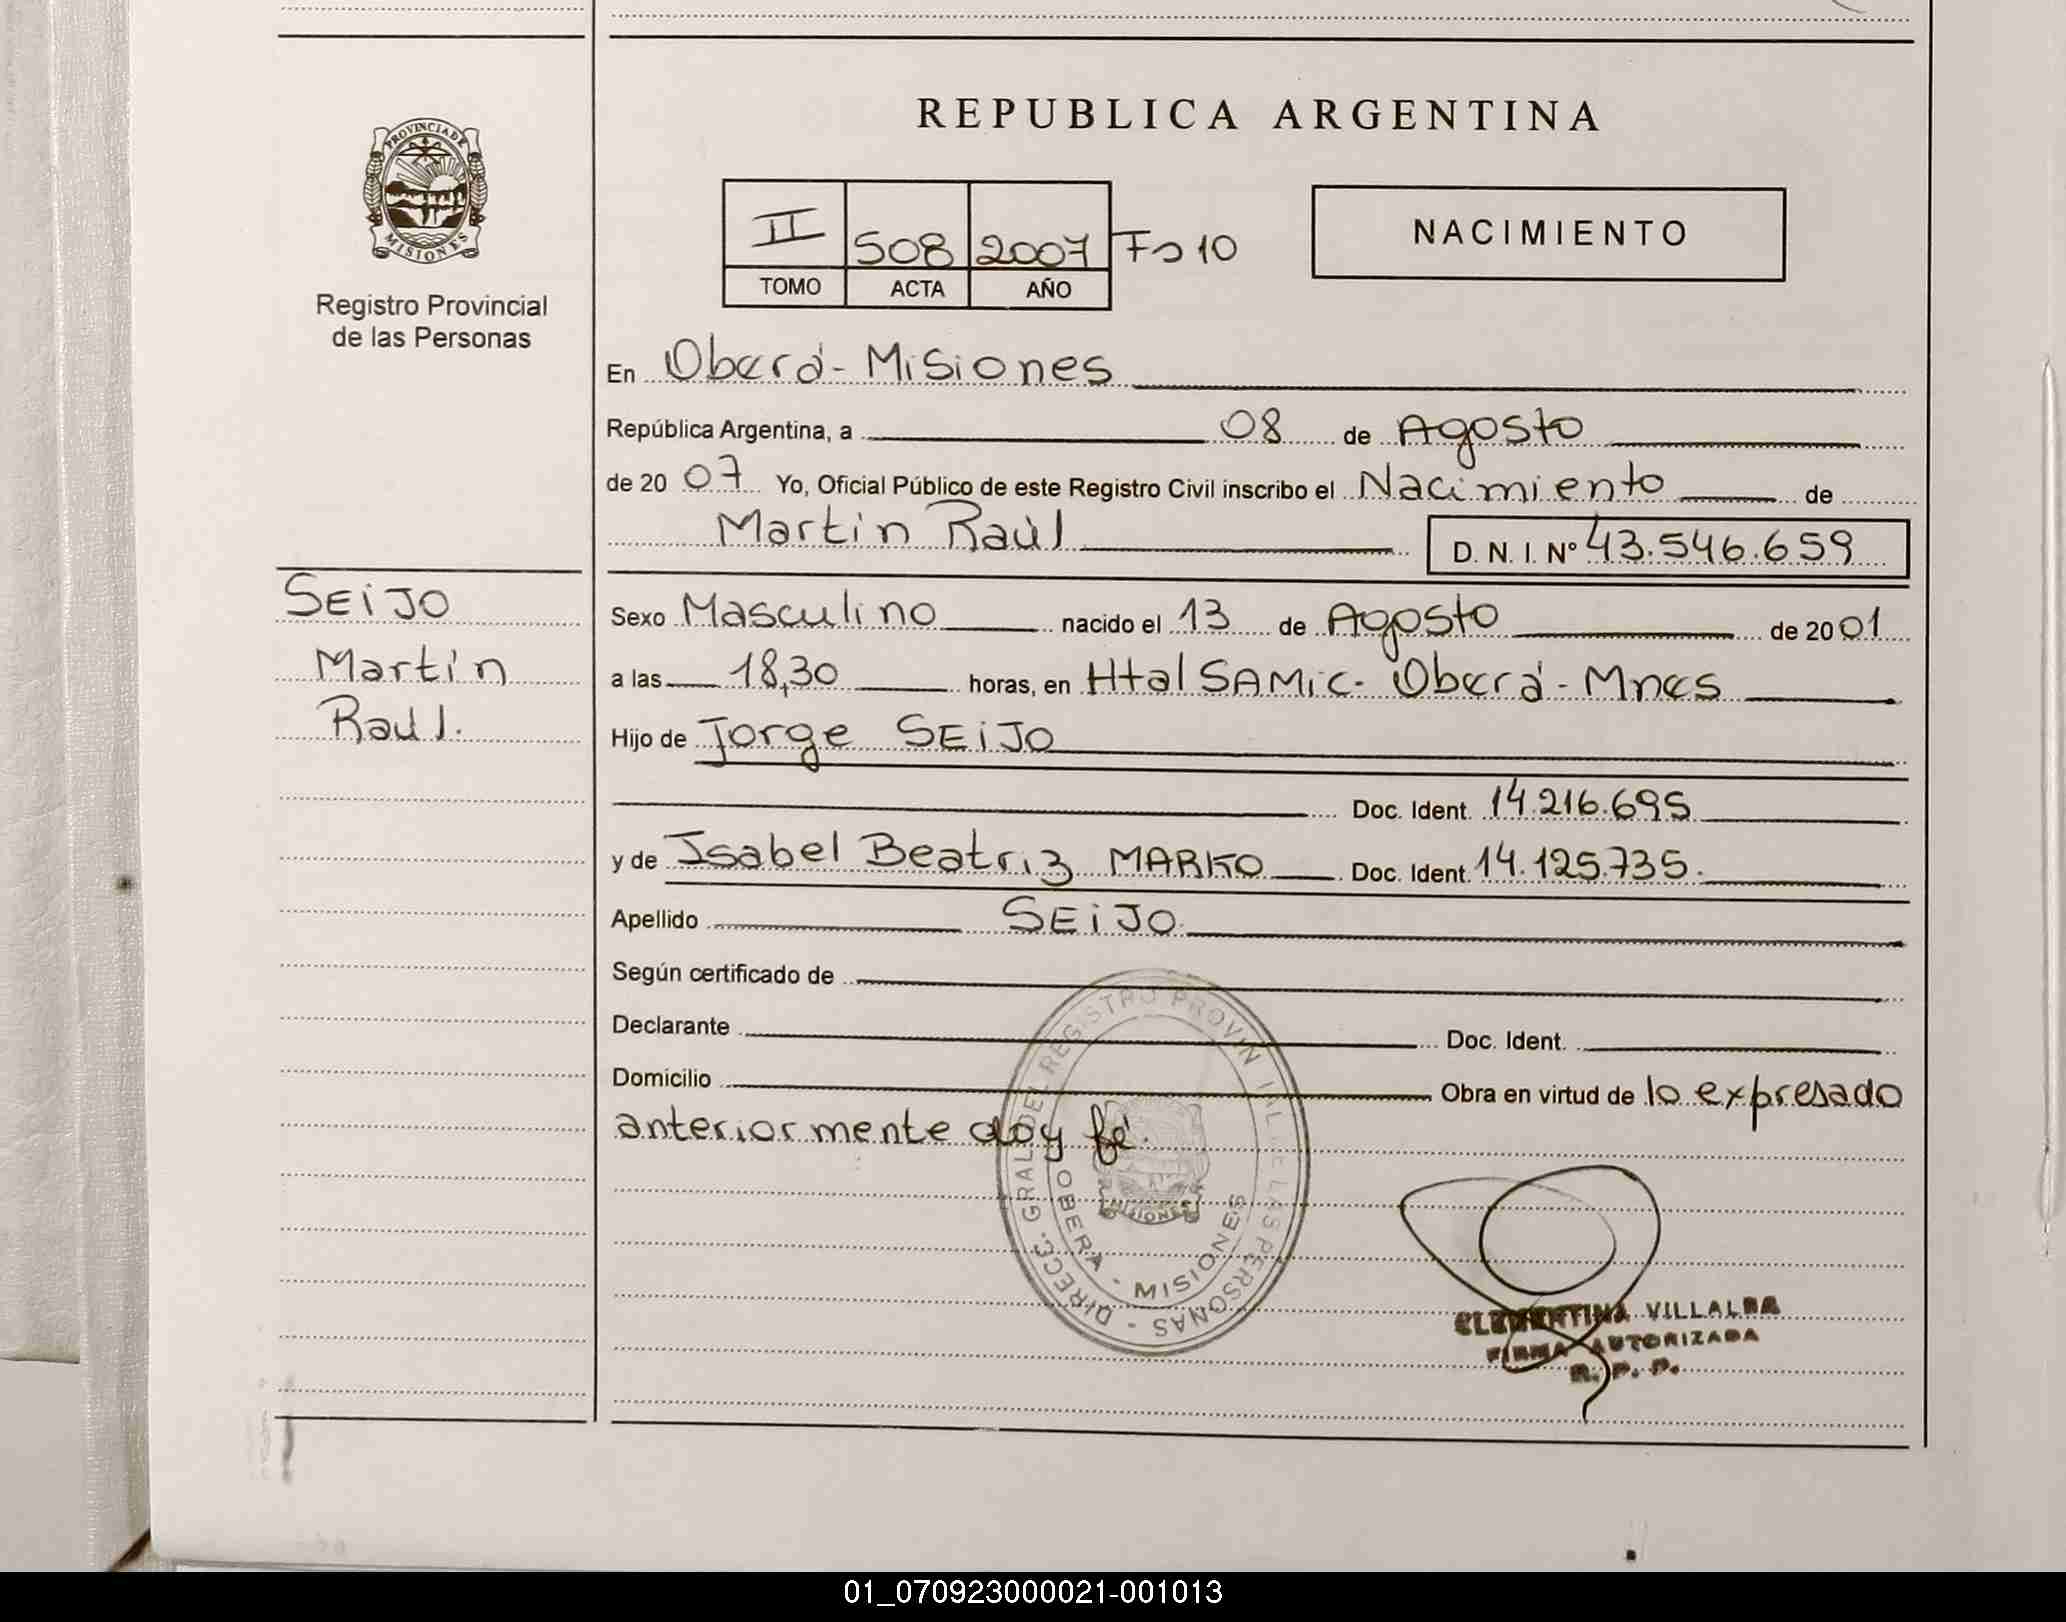 PROVINCIA DE
MISIONES
Registro Provincial
de las Personas
REPUBLICA ARGENTINA
II 508 2007 Fo 10
TOMO ACTA AÑO
NACIMIENTO
En Oberá - Misiones
República Argentina, a 08 de Agosto
de 20 07 Yo, Oficial Público de este Registro Civil inscribo el Nacimiento de
Martin Raúl D. N. I. Nº 43.546.659
SEIJO
Martín
Raul.
Sexo Masculino nacido el 13 de Agosto de 20 01
a las 18,30 horas, en Htal SAMic. Oberá - Mnes
Hijo de Jorge SEIJO
Doc. Ident. 14.216.695
y de Isabel Beatriz MARKO Doc. Ident. 14.125.735.
Apellido SEIJO
Según certificado de
Declarante Doc. Ident.
Domicilio Obra en virtud de lo expresado
anteriormente doy fé.
DIRECC. GRAL DEL REGISTRO PROVINCIAL DE LAS PERSONAS -
OBERA - MISIONES
MISIONES
CLEMENTINA VILLALBA
FIRMA AUTORIZADA
R. P. P.
01_070923000021-001013